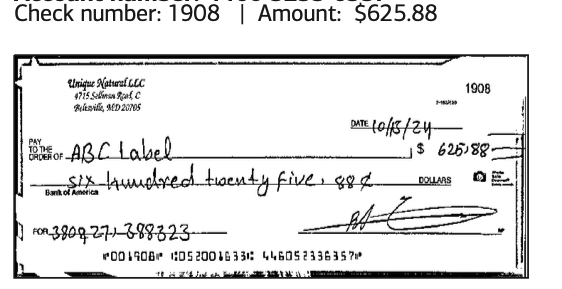 Check number: 1908 | Amount: $625.88
1908
Unique Natural LLC
4715 Sellman Road, C
Beltsville, MD 20705
DATE 10/15/24
PAY
TO THE
ORDER OF ABC Label $ 625.88
six hundred twenty five, 88¢ DOLLARS
Bank of America
FOR 380927, 388323
⑈001908⑈ ⑆052001633⑆ 446052336357⑈